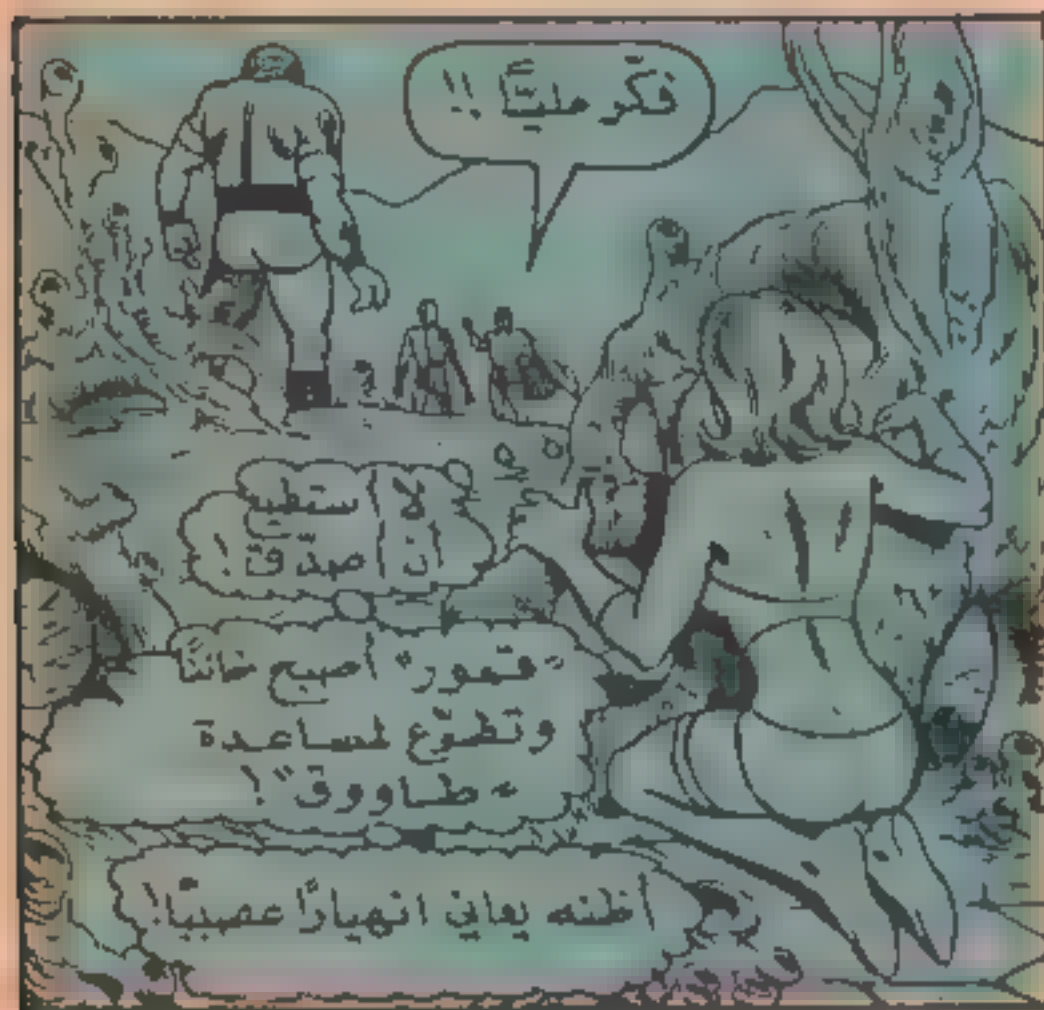 فكّر مليًّا !!
لا أستطيع
أن أصدّق !
"قمور" أصبح خائنًا
وتطوّع لمساعدة
"طاووق" !
أظنه يعاني انهيارًا عصبيًّا !